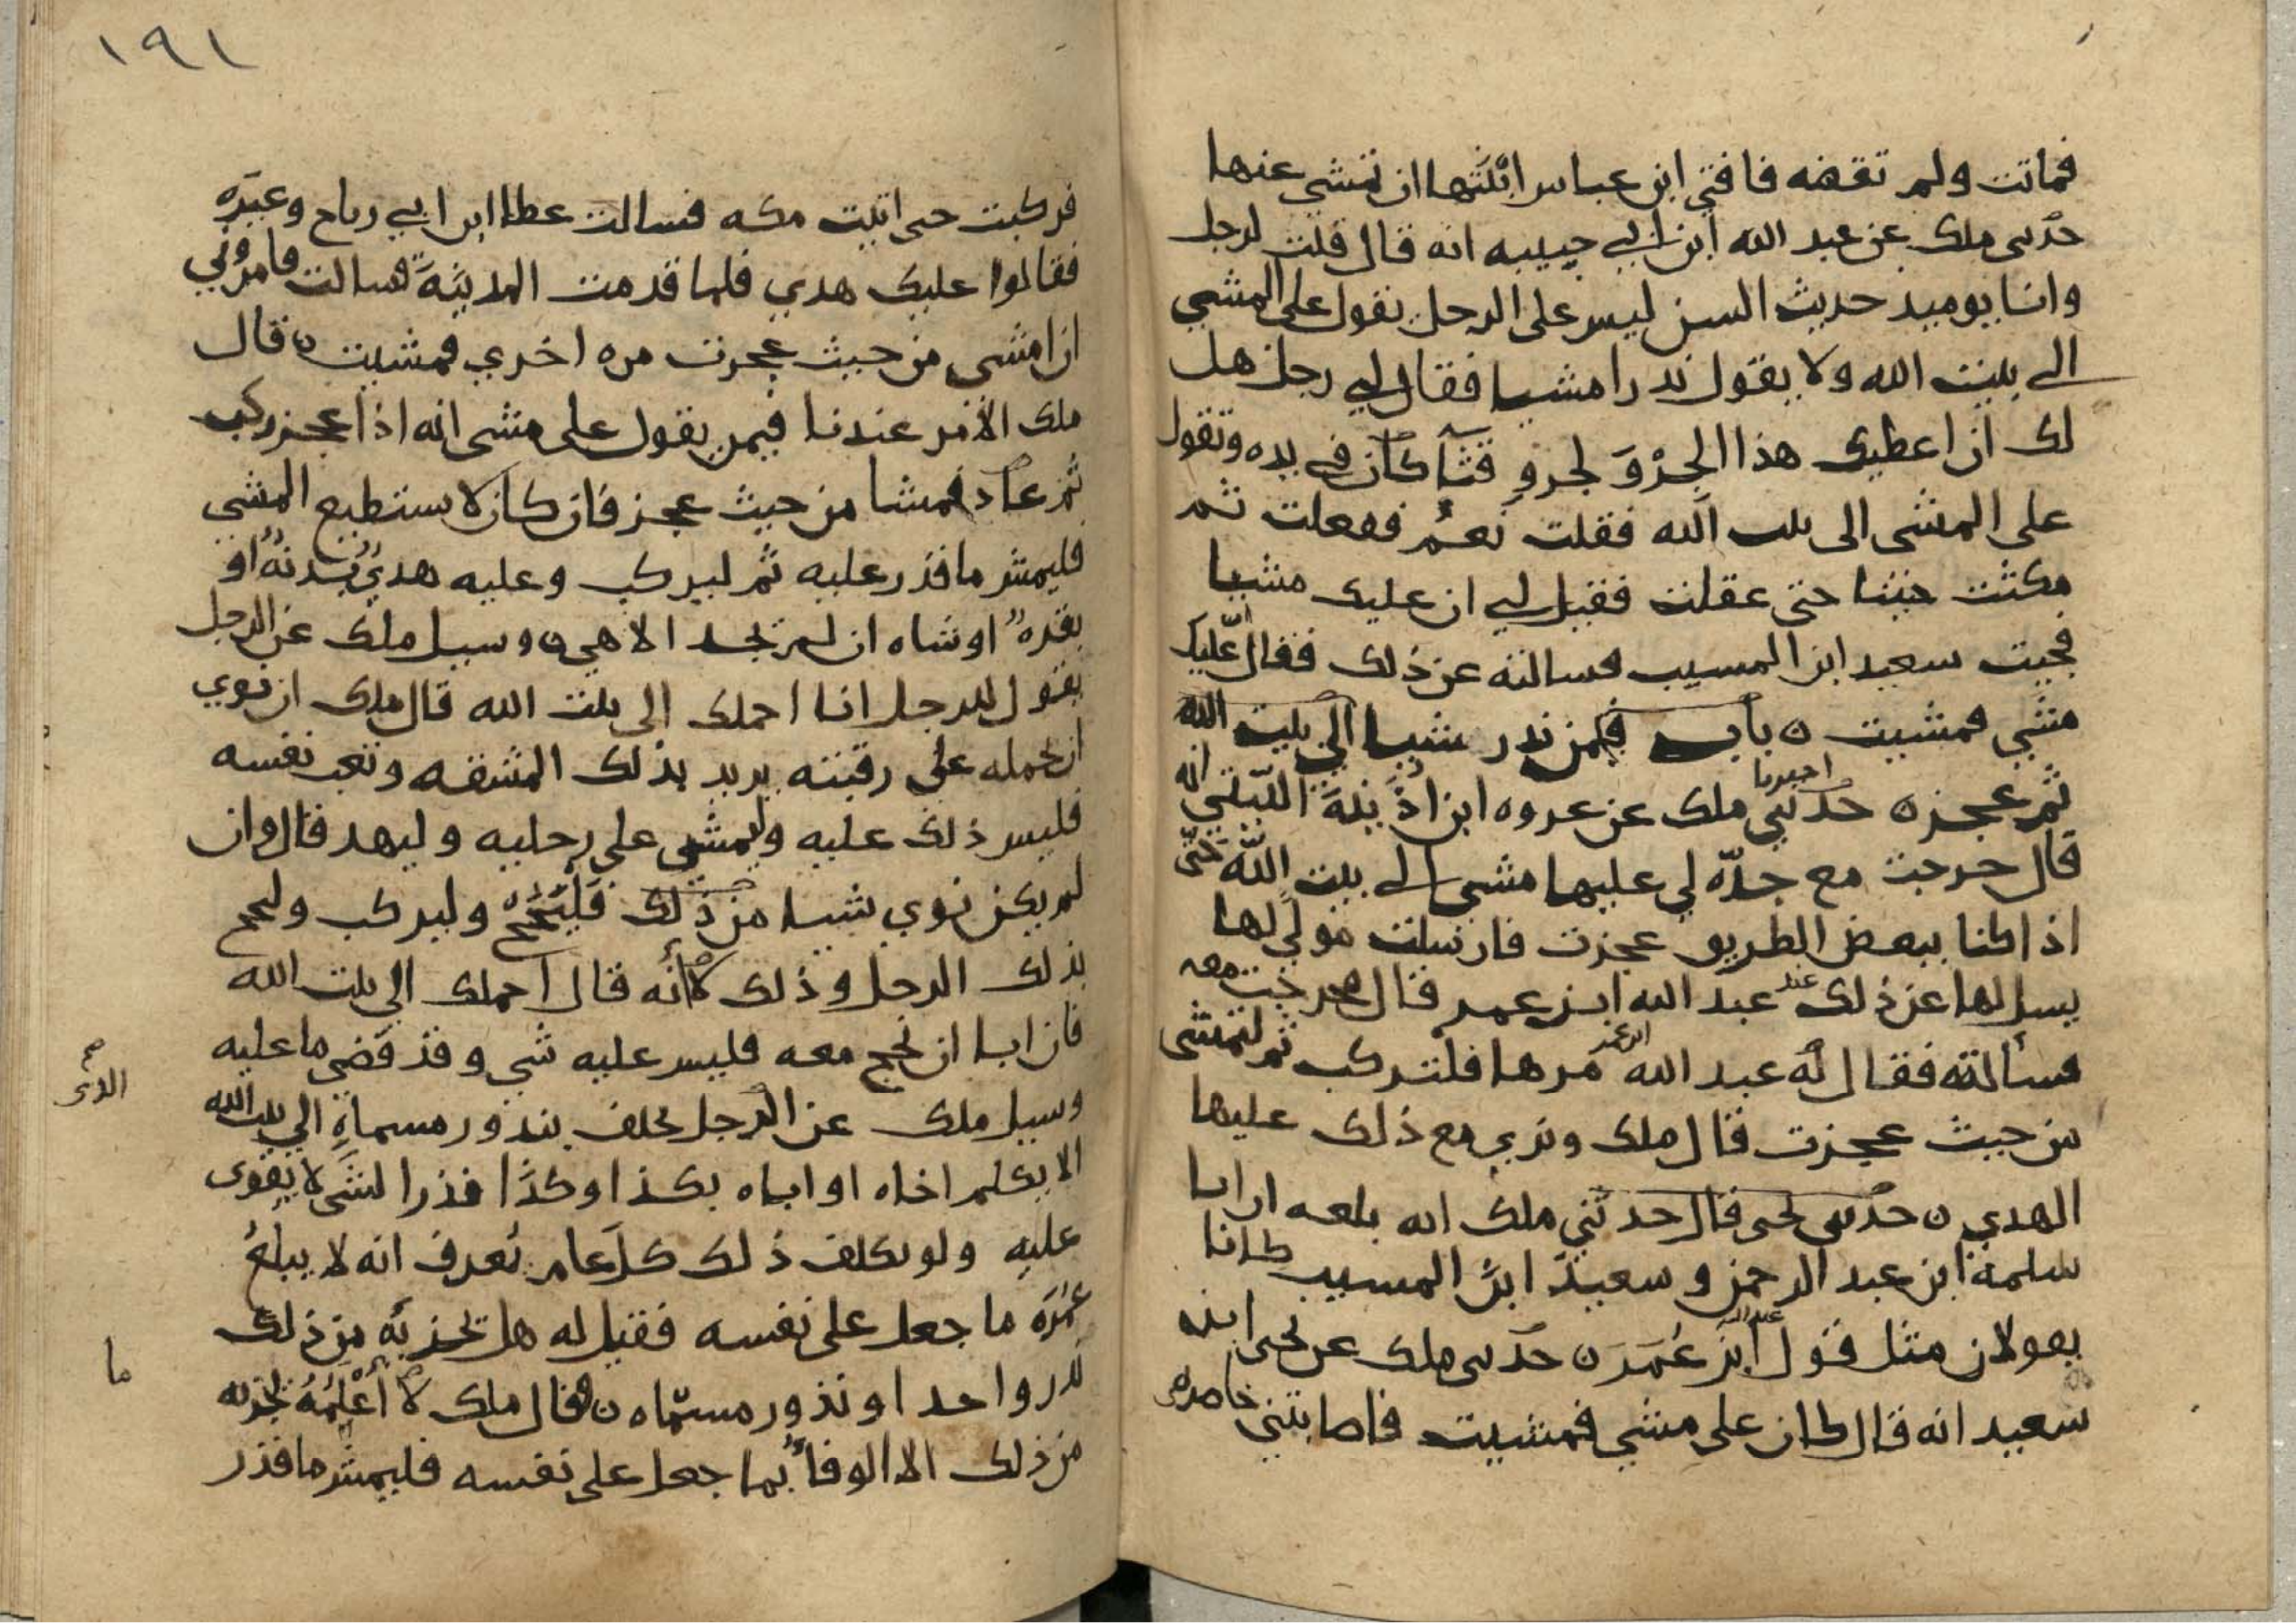 فماتت ولم تقضه فافتي ابن عباس ابْنَتَها ان تمشي عنها
حدثني ملك عن عبد الله ابن ابي حبيبه انه قال قلت لرجل
وانا يوميد حديث السن ليس على الرجل يقول علي المشي
الي بيت الله ولا يقول نذرا مشيا فقال لي رجل هل
لك ان اعطيك هذا الجِرْوَ لجروِ قثآ كان في يده وتقول
على المشى الى بيت الله فقلت نَعَمْ ففعلت ثم
مكثت حينا حتى عقلت فقيل لي ان عليك مشيا
فجيت سعيد ابن المسيب فسالته عن ذلك فقال عليك
مشي فمشيت ن باب فيمن نذر مشيا الي بيت الله
اخبرنا
ثم عجز ن حدثني ملك عن عروه ابن اذَينَةَ اللَّيثي انه
قال خرجت مع جدّه لي عليها مشي الي بيت اللّه حَتّى
اذا كنا ببعض الطريق عجزت فارسلت مولي لها
يسل لها عن ذلك عند عبد الله ابن عمر قال فخرجت معه
فسألته فقال له عبد الله ابن عمر مرها فلتركب ثم لتمشى
من حيث عجزت قال ملك ونري مع ذلك عليها
الهدي ن حدثني يحيى قال حدثني ملك انه بلغه ان ابا
سلمة ابن عبد الرحمن و سعيدَ ابنَ المسيب كانا
يقولان مثل قول عبد الله ابن عُمَرَ ن حدثني ملك عن يحيى ابنه
سعيد انه قال كان على مشي فمشيت فاصابتني خاصره
١٩١
فركبت حتى اتيت مكه فسالت عطا ابن ابي رباح وغيرَه
فقالوا عليك هدي فلما قدمت المدينَةَ سالت فامرُوني
ان امشي من حيث عجزت مره اخري فمشيت ن قال
ملك الأمر عندنا فيمن يقول على مشى انه اذا عجز ركب
ثم عاد فمشا من حيث عجز فان كان لا يستطيع المشي
فليمش ما قدر عليه ثم ليركب وعليه هديُ بُدنةٌ او
بقرهٌ او شاه ان لم يجد الا هي ن وسيل ملك عن الرجل
يقول للرجل انا احملك الى بيت الله قال ملك ان نوي
ان يحمله على رقبته يريد بذلك المشقه وتعب نفسه
فليس ذلك عليه وليمشي على رجليه وليهد قال وان
لم يكن نوي شيا من ذلك فَلْيَحُجّ وليركب وليحج
بذلك الرجل وذلك لأنه قال احملك الي بيت الله
فان ابا ان يحج معه فليس عليه شي وقد قضي ما عليه
صح
الذى
وسيل ملك عن الرجل يحلف بنذور مسماةٍ الي بيت الله
الا يكلم اخاه او اباه بكذا وكذَا نذرا لشى لا يقوى
عليه ولو تكلف ذلك كل عام يُعرف انه لا يبلغُ
عُمُرَه ما جعل على نفسه فقيل له هل يجزيه من ذلك
ما
نذر واحد او نذور مسمّاه ن فقال ملك لا أَعْلَمُهُ يجزيه
من ذلك الا الوفأُ بما جعل على نفسه فليمش ما قدر